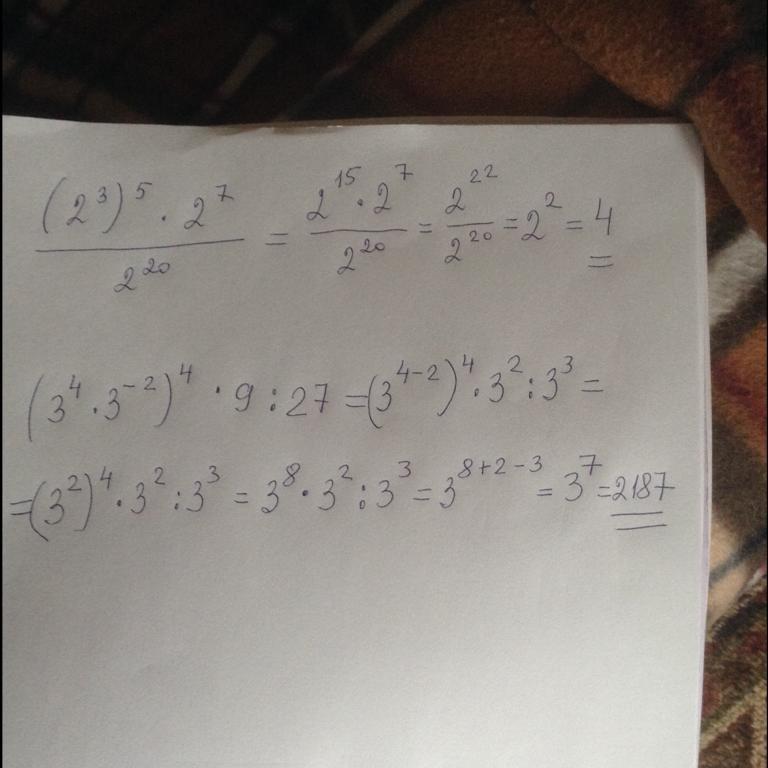 (2³)⁵ · 2⁷ / 2²⁰ = 2¹⁵ · 2⁷ / 2²⁰ = 2²² / 2²⁰ = 2² = 4
(3⁴ · 3⁻²)⁴ · 9 : 27 = (3⁴⁻²)⁴ · 3² : 3³ =
= (3²)⁴ · 3² : 3³ = 3⁸ · 3² : 3³ = 3⁸⁺²⁻³ = 3⁷ = 2187